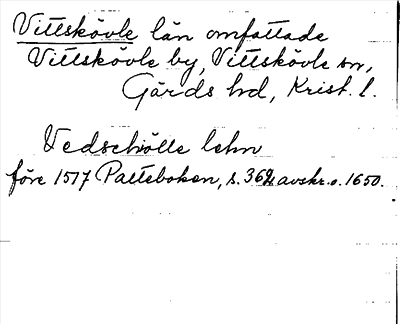 Vittskövle län omfattade
Vittskövle by, Vittskövle sn,
Gärds hd, Krist. l.
Vedschiölle lehn
före 1517 Palteboken, s. 362 avskr. o. 1650.